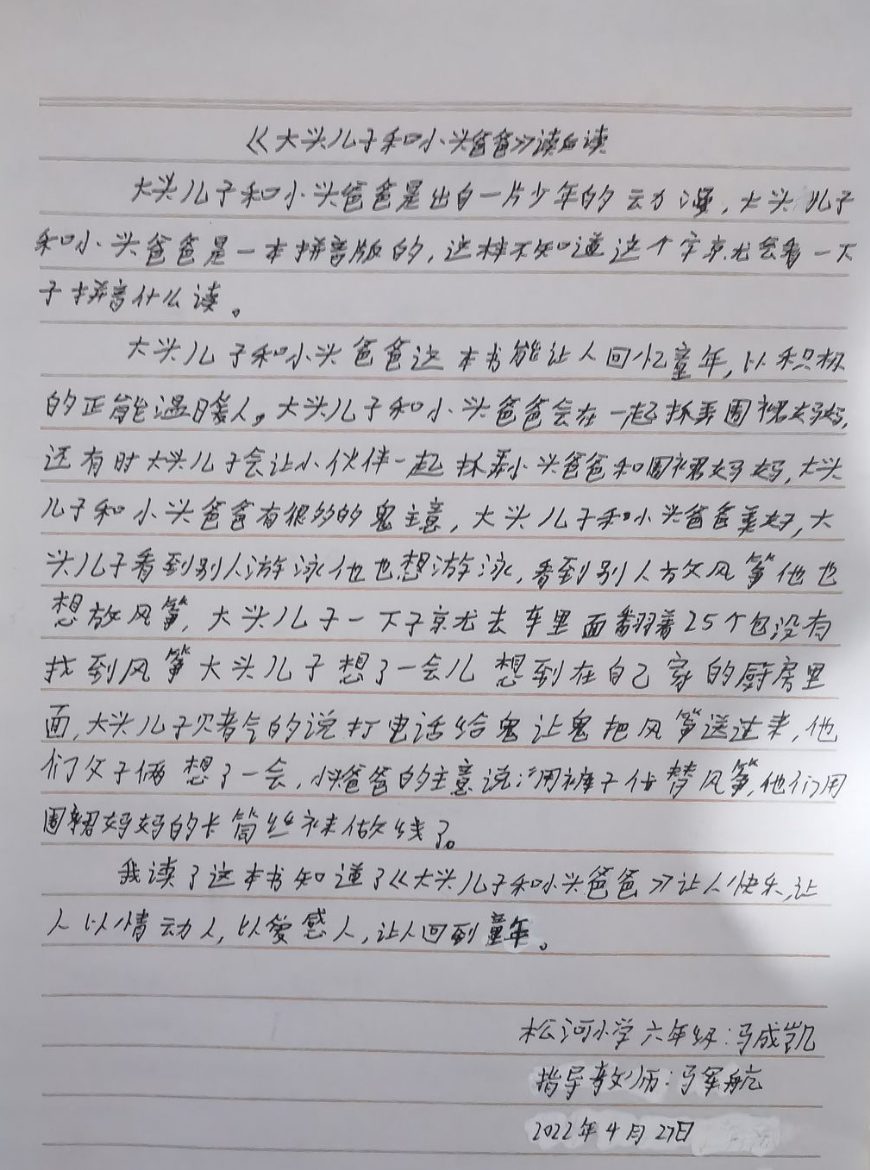 《大头儿子和小头爸爸》读后读
大头儿子和小头爸爸是出自一片少年的动漫，大头儿子
和小头爸爸是一本拼音版的，这样不知道这个字就会看一下
子拼音什么读。
大头儿子和小头爸爸这本书能让人回忆童年，以积极
的正能温暖人。大头儿子和小头爸爸会在一起抓弄围裙妈妈，
还有时大头儿子会让小伙伴一起抓弄小头爸爸和围裙妈妈，大头
儿子和小头爸爸有很多的鬼主意，大头儿子和小头爸爸美好，大
头儿子看到别人游泳他也想游泳，看到别人放风筝他也
想放风筝，大头儿子一下子就去车里面翻着25个包没有
找到风筝大头儿子想了一会儿想到在自己家的厨房里
面，大头儿子叹着气的说打电话给鬼让鬼把风筝送过来，他
们父子俩想了一会，小头爸爸的主意说：用裤子代替风筝，他们用
围裙妈妈的长筒丝袜做线了。
我读了这本书知道了《大头儿子和小头爸爸》让人快乐，让
人以情动人，以爱感人，让人回到童年。
松河小学六年级：马成凯
指导教师：马军航
2022年4月27日